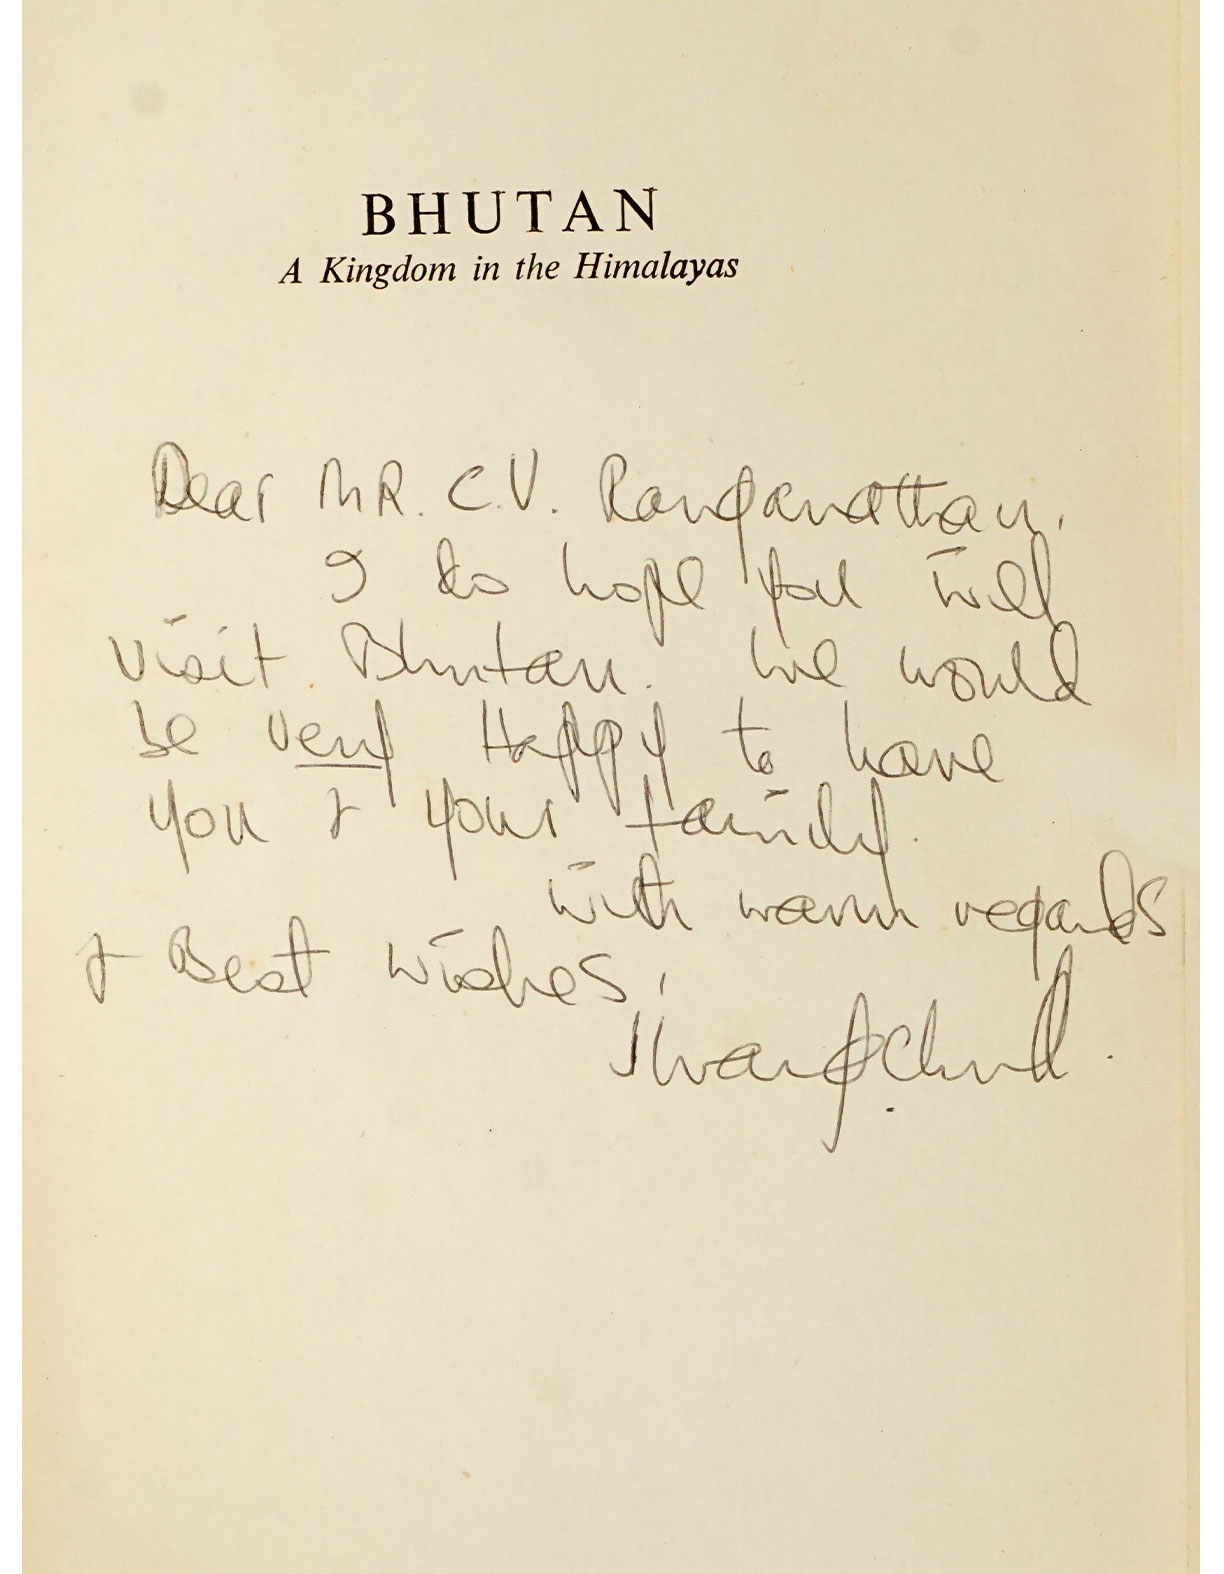 BHUTAN
A Kingdom in the Himalayas
Dear MR. C.V. Ranganathan,
I do hope you will
visit Bhutan. We would
be very Happy to have
you & your family.
with warm regards
& Best wishes,